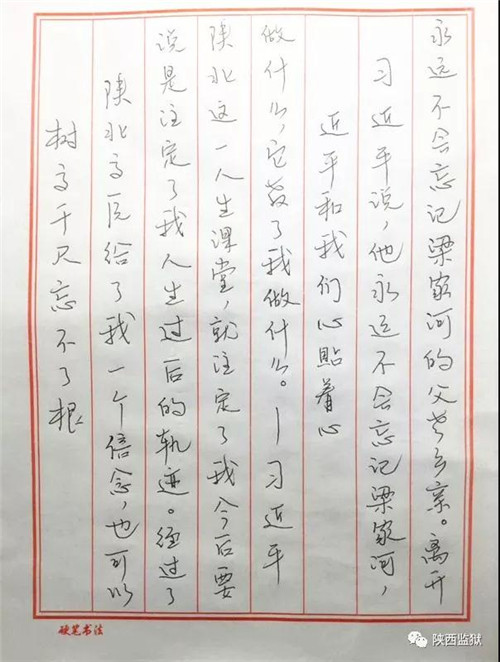 树高千尺忘不了根
陕北高原给了我一个信念,也可以
说是注定了我人生过后的轨迹。经过了
陕北这一人生课堂,就注定了我今后要
做什么,它教了我做什么。—习近平
近平和我们心貼着心
习近平说,他永远不会忘记梁家河,
永远不会忘记梁家河的父老乡亲。离开
硬笔书法
陕西监狱